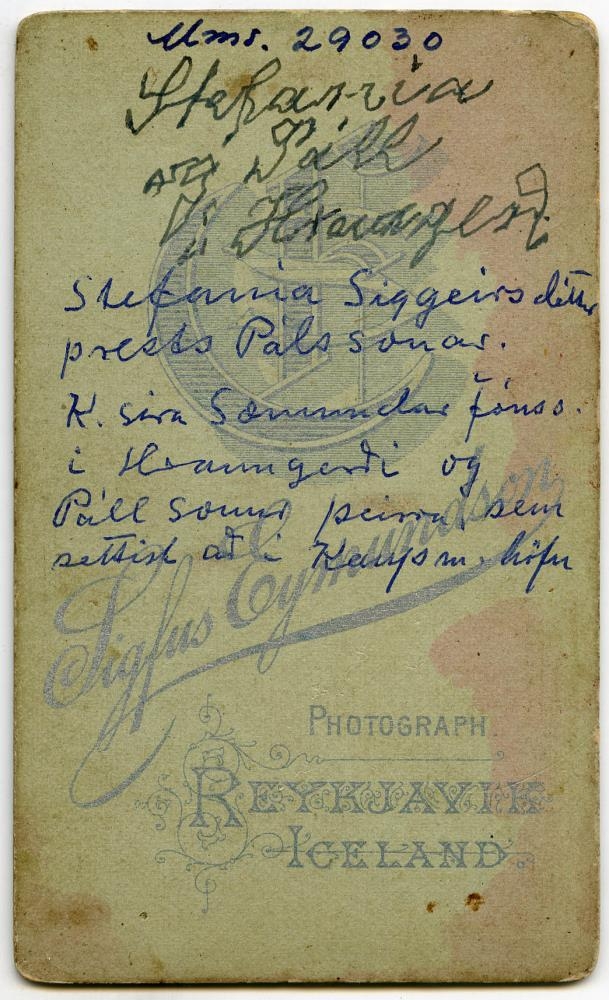 Mms. 29030
Stefanía
og Páll
í Hraungerði
Stefanía Siggeirsdóttir
prests Pálssonar.
K. síra Sæmundar Jónss.
í Hraungerði og
Páll sonur þeirra, sem
settist að í Kaupm.höfn
Sigfús Eymundson
PHOTOGRAPH.
REYKJAVIK
ICELAND.